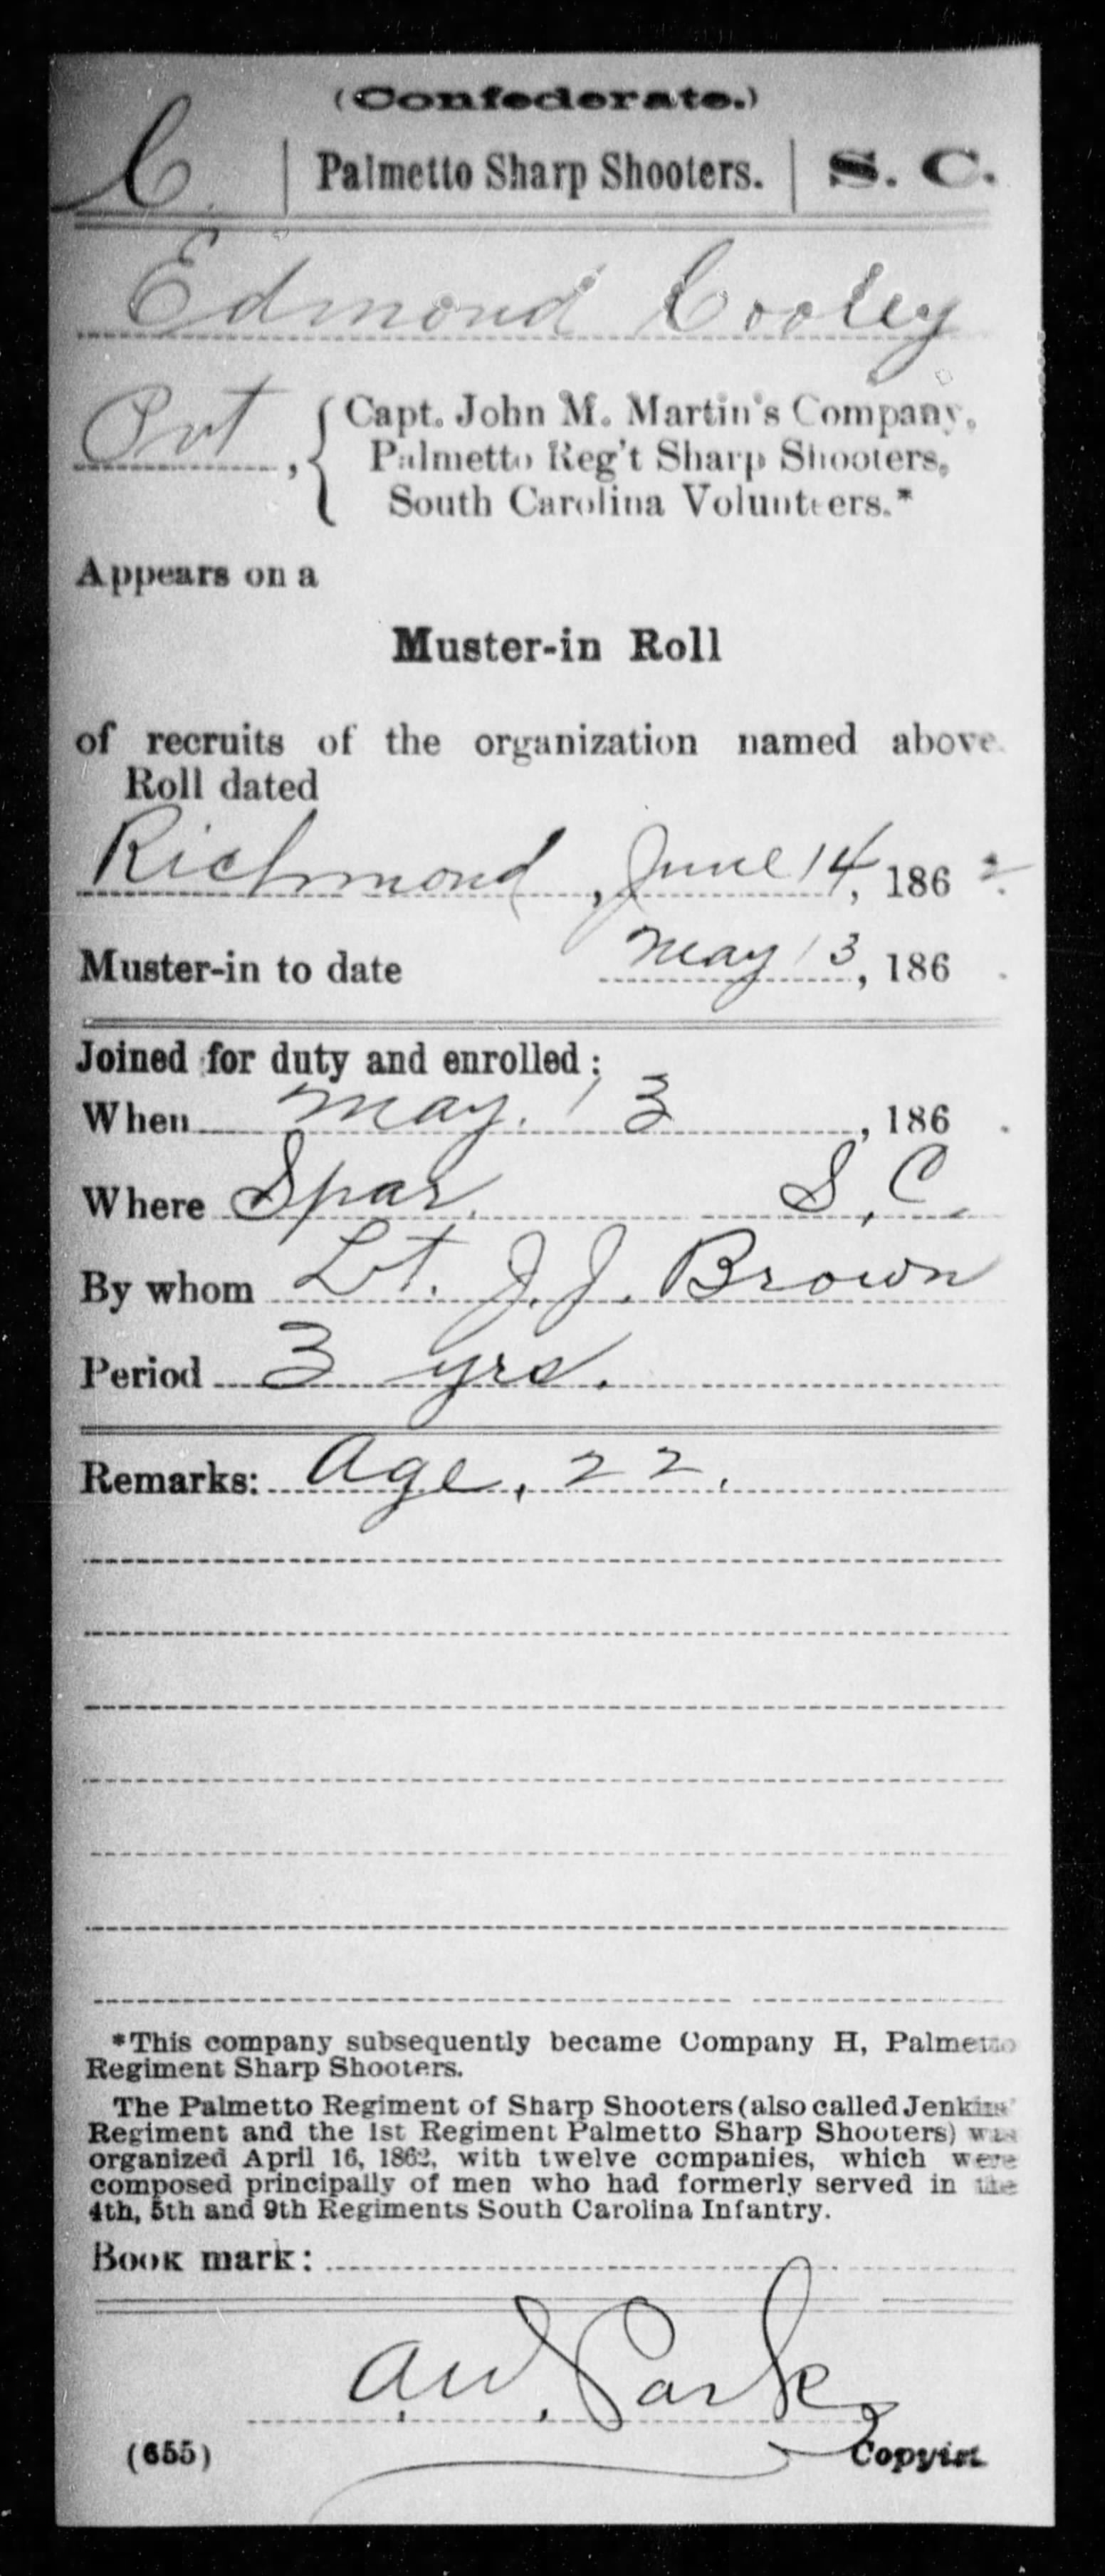 (Confederate.)
C. | Palmetto Sharp Shooters. | S. C.
Edmond Cooley
Pvt, { Capt. John M. Martin's Company,
Palmetto Reg't Sharp Shooters,
South Carolina Volunteers.*
Appears on a
Muster-in Roll
of recruits of the organization named above.
Roll dated
Richmond, June 14, 1862.
Muster-in to date May 13, 186 .
Joined for duty and enrolled:
When May. 13, 186 .
Where Spar. S. C.
By whom Lt. J. J. Brown
Period 3 yrs.
Remarks: Age. 22.
*This company subsequently became Company H, Palmetto
Regiment Sharp Shooters.
The Palmetto Regiment of Sharp Shooters (also called Jenkins'
Regiment and the 1st Regiment Palmetto Sharp Shooters) was
organized April 16, 1862, with twelve companies, which were
composed principally of men who had formerly served in the
4th, 5th and 9th Regiments South Carolina Infantry.
Book mark:
A. W. Park
(655) Copyist.